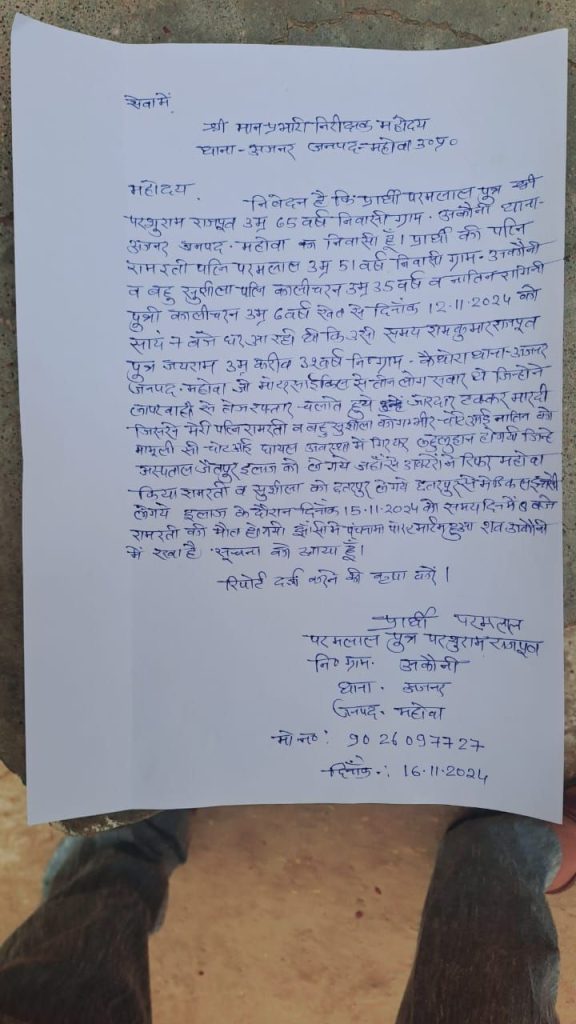 सेवा में,
श्री मान प्रभारी निरीक्षक महोदय
थाना - अजनर जनपद - महोवा उ०प्र०
महोदय,
निवेदन है कि प्रार्थी परमलाल पुत्र श्री
परशुराम राजपूत उम्र 65 वर्ष निवासी ग्राम - अकौनी थाना-
अजनर जनपद - महोवा का निवासी हूँ। प्रार्थी की पत्नि
रामरती पत्नि परमलाल उम्र 51 वर्ष निवासी ग्राम - अकौनी
व बहु सुशीला पत्नि कालीचरन उम्र 35 वर्ष व नातिन रागिनी
पुत्री कालीचरन उम्र 6 वर्ष खेत से दिनाँक 12.11.2024 को
सायं 7 बजे घर आ रही थी कि उसी समय रामकुमार राजपूत
पुत्र जयराम उम्र करीव 32 वर्ष नि० ग्राम - कैथोरा थाना - अजनर
जनपद - महोवा जो मोटरसाईकिल से तीन लोग सवार थे जिन्होने
लापरवाही से तेज रफ्तार चलाते हुये जोरदार टक्कर मारदी
जिससे मेरी पत्नि रामरती व बहु सुशीला को गम्भीर चोटे आई नातिन को
मामूली सी चोट आई घायल अवस्था में गिरकर लहुलुहान हो गयी जिन्हे
अस्पताल जैतपुर इलाज को ले गये जहाँ से डाक्टरो ने रिफर महोवा
किया रामरती व सुशीला को छतरपुर ले गये छतरपुर से मेडिकल
ले गये इलाज के दौरान दिनाँक 15.11.2024 को समय दिन में 8 बजे
रामरती की मौत हो गयी झाँसी में पंचनामा पोस्टमार्टम हुआ शव अकौनी
में रखा है। सूचना को आया हूँ।
रिपोर्ट दर्ज करने की कृपा करें।
प्रार्थी परमलाल
परमलाल पुत्र परशुराम राजपूत
नि० ग्राम - अकौनी
थाना - अजनर
जनपद - महोवा
मो०न०: 9026097727
दिनाँक: 16.11.2024